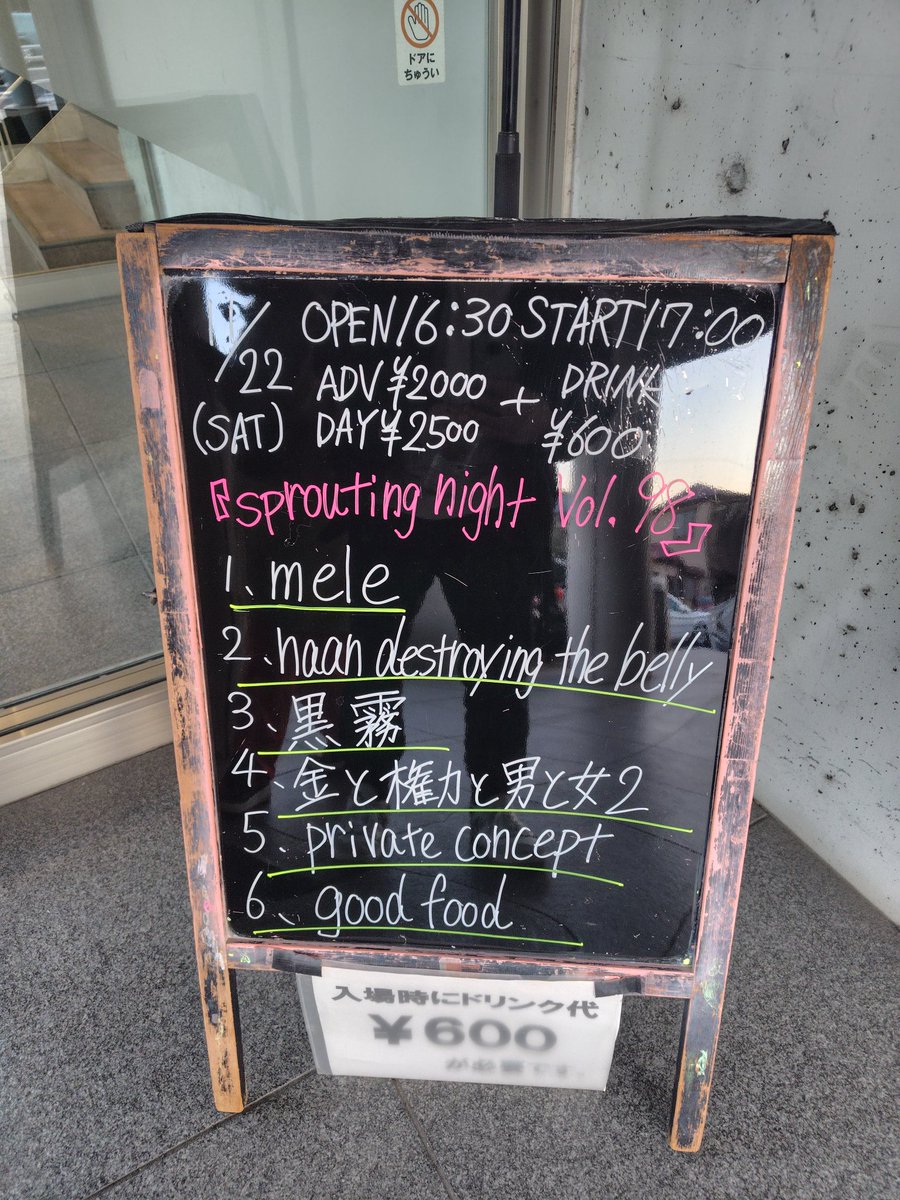 OPEN16:30 START17:00
/22 ADV ¥2000 + DRINK
(SAT) DAY ¥2500 ¥600
『sprouting night Vol. 98』
1、mele
2、naan destroying the belly
3、黒霧
4、金と権力と男と女2
5、private concept
6、good food
入場時にドリンク代
¥600
ドアに
ちゅうい